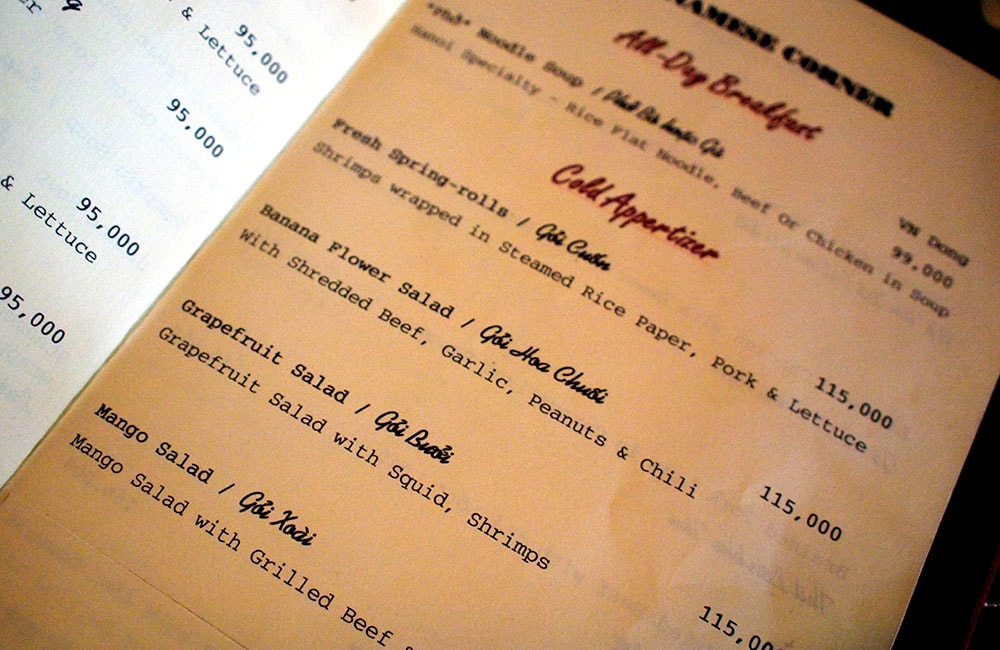 & Lettuce
95,000
95,000
& Lettuce
95,000
95,000
NAMESE CORNER
All-Day Breakfast
VN Dong
"Phở" Noodle Soup / Phở Bò hoặc Gà 99,000
Hanoi Specialty - Rice Flat Noodle, Beef Or Chicken in Soup
Cold Appertizer
Fresh Spring-rolls / Gỏi Cuốn 115,000
Shrimps wrapped in Steamed Rice Paper, Pork & Lettuce
Banana Flower Salad / Gỏi Hoa Chuối 115,000
With Shredded Beef, Garlic, Peanuts & Chili
Grapefruit Salad / Gỏi Bưởi 115,000
Grapefruit Salad with Squid, Shrimps
Mango Salad / Gỏi Xoài
Mango Salad with Grilled Beef